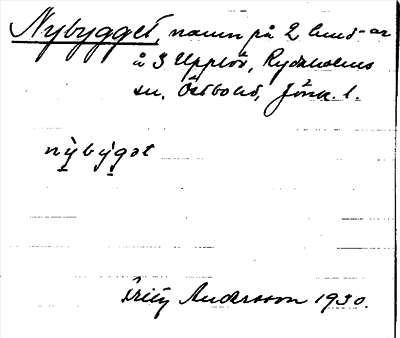 Nybygget, namn på 2 lund-ar
å 3 Upplöv, Rydaholms
sn, Östbo hd, Jönk. l.
nỳbỳgət
Fritz Andersson 1930.